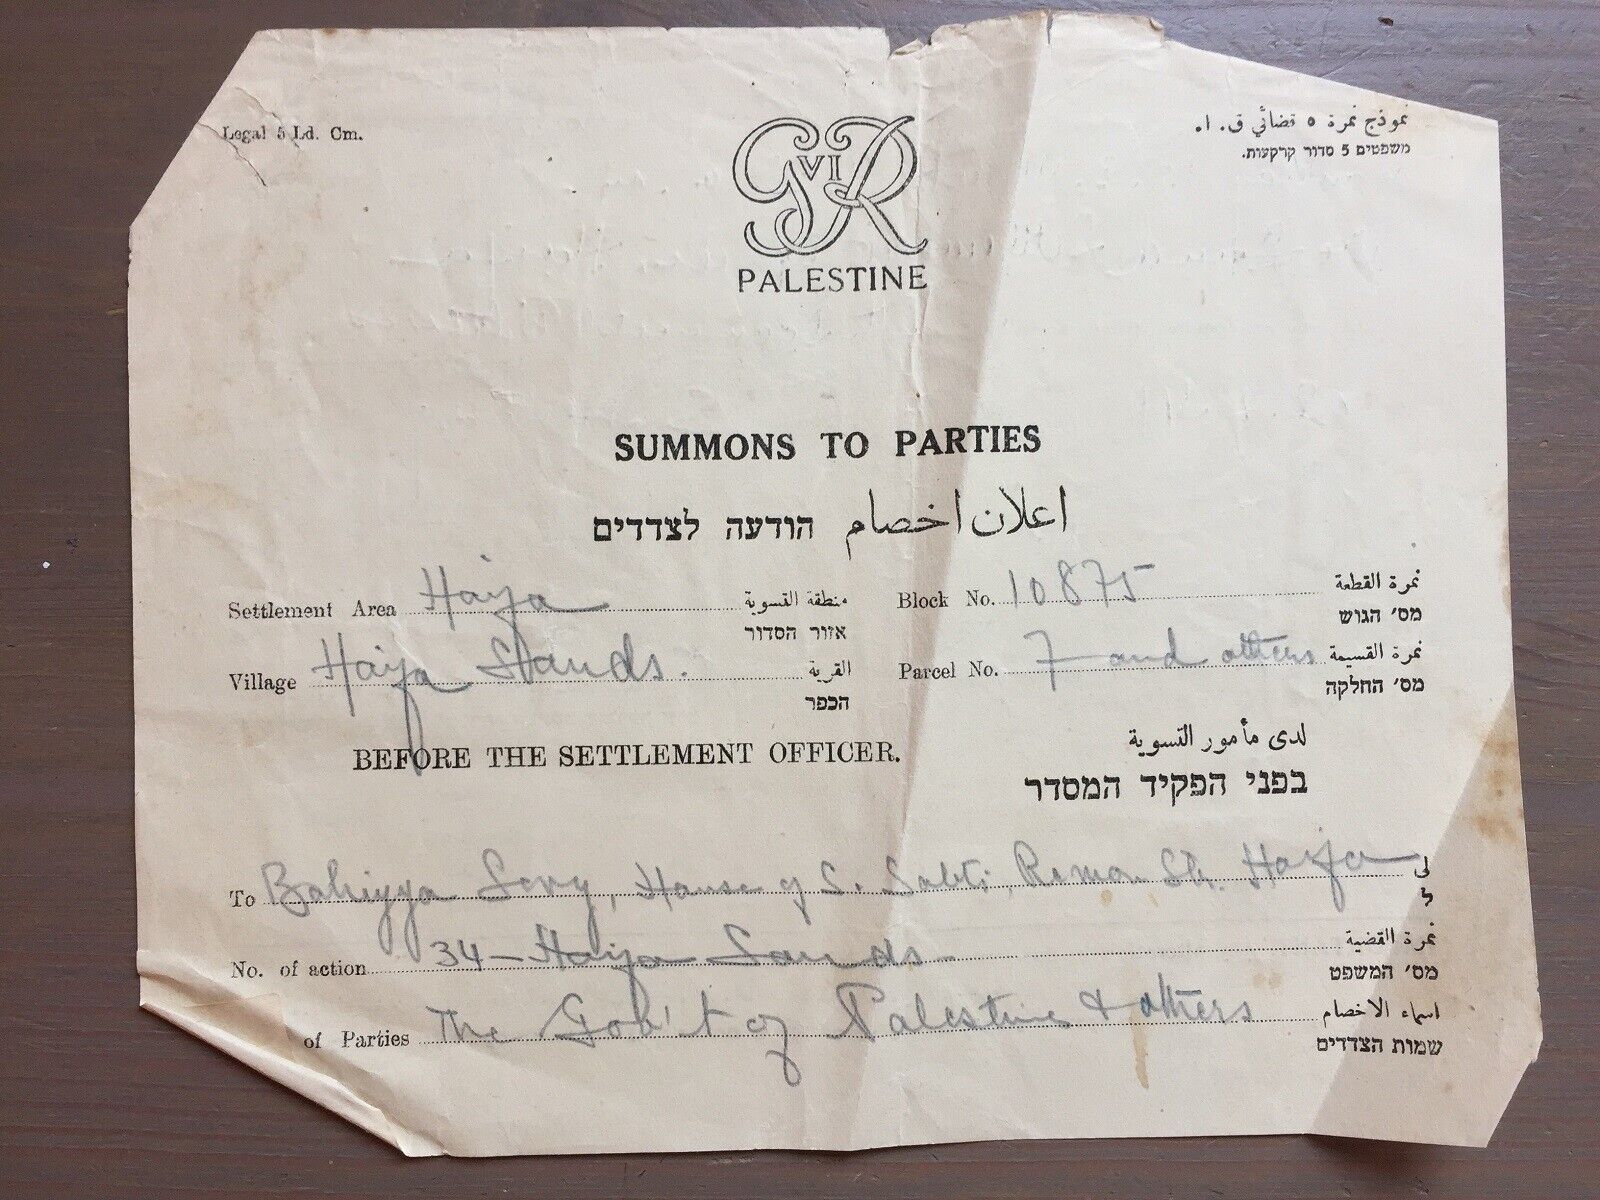 Legal 5 Ld. Cm.
نموذج نمرة ٥ قضائي ق. ا.
משפטים 5 סדור קרקעות.
G VI R
PALESTINE
SUMMONS TO PARTIES
اعلان اخصام הודעה לצדדים
Settlement Area Haifa منطقة التسوية
אזור הסדור
Block No. 10875 نمرة القطعة
מס' הגוש
Village Haifa Sands. القرية
הכפר
Parcel No. 7 and others نمرة القسيمة
מס' החלקה
BEFORE THE SETTLEMENT OFFICER.
لدى مأمور التسوية
בפני הפקיד המסדר
To Bahiyya Levy, House of S. Sabti, Str. Haifa لى
ל
No. of action 34 - Haifa Sands نمرة القضية
מס' המשפט
of Parties The Gov't of Palestine & others اسماء الاخصام
שמות הצדדים